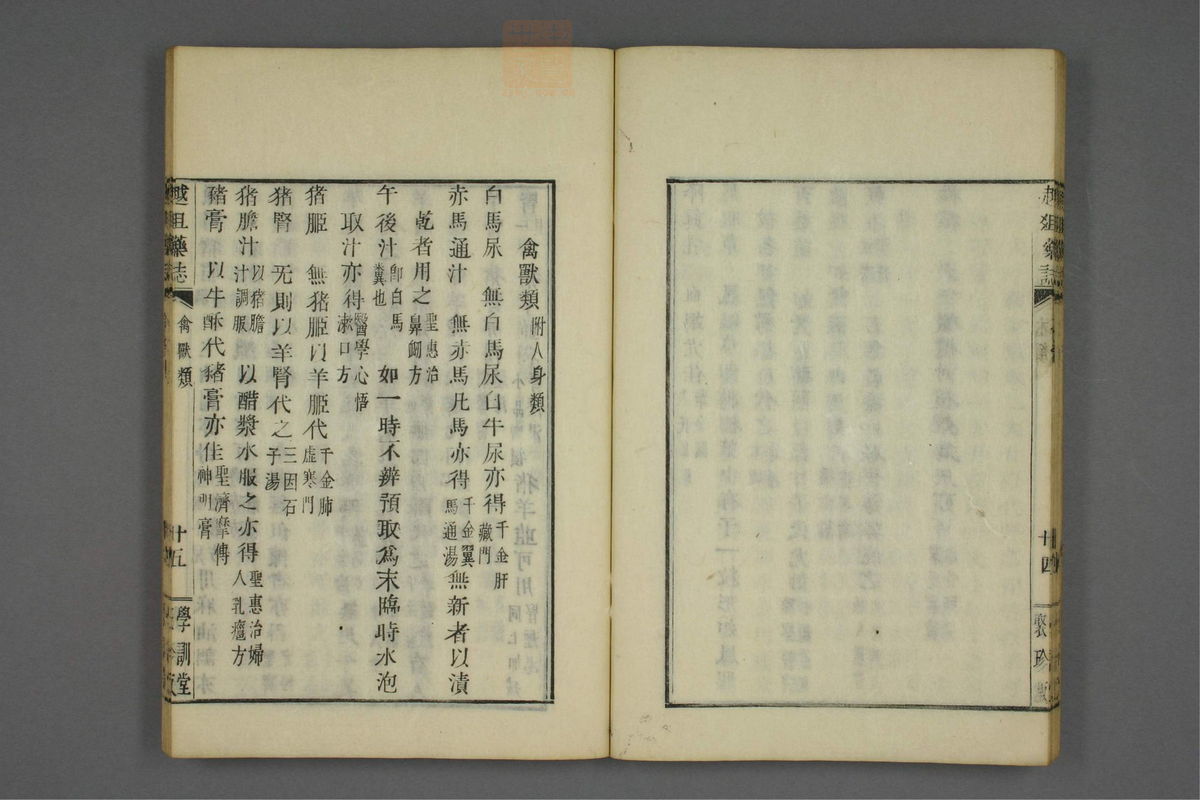 越俎藥誌
廿四
聚珍版
禽獸類附人身類
白馬尿　無白馬尿白牛尿亦得千金肝藏門
赤馬通汁　無赤馬凡馬亦得千金翼馬通湯無新者以漬
乾者用之聖惠治鼻衂方
午後汁卽白馬糞也　如一時不辨預取爲末臨時水泡
取汁亦得醫學心悟漱口方
猪胵　無猪胵以羊胵代千金肺虛寒門
猪腎　无則以羊腎代之三因石子湯
猪膽汁以猪膽汁調服以醋漿水服之亦得聖惠治婦人乳癰方
豬膏　以牛酥代豬膏亦佳聖濟摩傅神明膏
越俎藥誌
禽獸類
十五
學訓堂